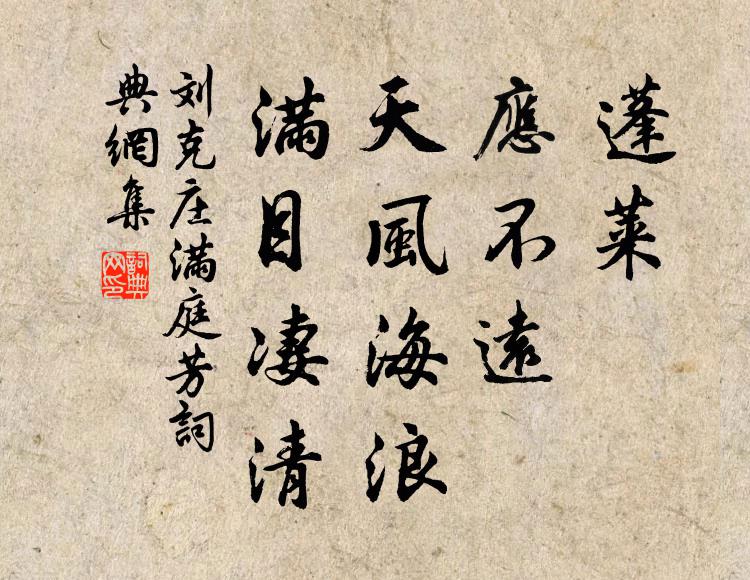 蓬萊
應不遠
天風海浪
滿目凄清
刘克庄滿庭芳詞
典網集
詞典网印